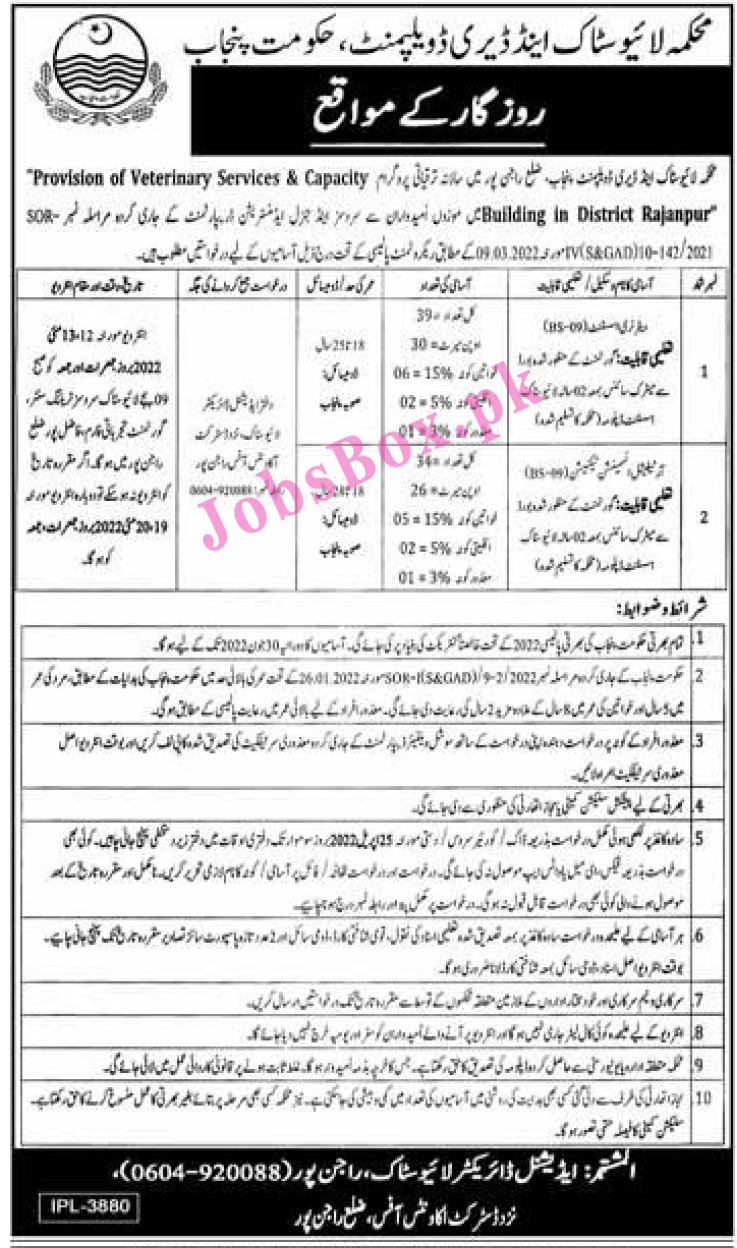 محکمہ لائیوسٹاک اینڈ ڈیری ڈویلپمنٹ، حکومت پنجاب
روزگار کے مواقع
محکمہ لائیوسٹاک اینڈ ڈیری ڈویلپمنٹ پنجاب، ضلع راجن پور میں سالانہ ترقیاتی پروگرام "Provision of Veterinary Services & Capacity
Building in District Rajanpur" میں موزوں اُمیدواران سے سروسز اینڈ جنرل ایڈمنسٹریشن ڈیپارٹمنٹ کے جاری کردہ مراسلہ نمبر SOR-
IV(S&GAD)10-142/2021 مورخہ 09.03.2022 کے مطابق ریکروٹمنٹ پالیسی کے تحت درج ذیل آسامیوں کے لیے درخواستیں مطلوب ہیں۔
نمبر شمار
آسامی کا نام و سکیل / تعلیمی قابلیت
آسامی کی تعداد
عمر کی حد / ڈومیسائل
درخواست جمع کروانے کی جگہ
تاریخ، وقت اور مقام انٹرویو
1
ویٹرنری اسسٹنٹ (BS-09)
تعلیمی قابلیت: گورنمنٹ کے منظور شدہ بورڈ
سے میٹرک سائنس بمعہ 02 سالہ لائیوسٹاک
اسسٹنٹ ڈپلومہ (محکمہ کا تسلیم شدہ)
کل تعداد = 39
اوپن میرٹ = 30
خواتین کوٹہ 15% = 06
اقلیتی کوٹہ 5% = 02
معذور کوٹہ 3% = 01
18 تا 25 سال
ڈومیسائل:
صوبہ پنجاب
دفتر ایڈیشنل ڈائریکٹر
لائیوسٹاک، نزد ڈسٹرکٹ
اکاؤنٹس آفس راجن پور
رابطہ نمبر: 0604-920088
انٹرویو مورخہ 12-13 مئی
2022 بروز جمعرات اور جمعہ کو صبح
09 بجے لائیوسٹاک سروسز ٹریننگ سنٹر،
گورنمنٹ تجرباتی فارم، فاضل پور ضلع
راجن پور میں ہوگا۔ اگر مقررہ تاریخ
کو انٹرویو نہ ہو سکے تو دوبارہ انٹرویو مورخہ
19-20 مئی 2022 بروز جمعرات و جمعہ
کو ہوگا۔
2
آرٹیفیشل انسیمینیشن ٹیکنیشن (BS-09)
تعلیمی قابلیت: گورنمنٹ کے منظور شدہ بورڈ
سے میٹرک سائنس بمعہ 02 سالہ لائیوسٹاک
اسسٹنٹ ڈپلومہ (محکمہ کا تسلیم شدہ)
کل تعداد = 34
اوپن میرٹ = 26
خواتین کوٹہ 15% = 05
اقلیتی کوٹہ 5% = 02
معذور کوٹہ 3% = 01
18 تا 28 سال
ڈومیسائل:
صوبہ پنجاب
JobsBox.pk
شرائط و ضوابط:
1. تمام بھرتی حکومت پنجاب کی بھرتی پالیسی 2022 کے تحت خالصتاً کنٹریکٹ کی بنیاد پر کی جائے گی۔ آسامیوں کا دورانیہ 30 جون 2022 تک کے لیے ہوگا۔
2. حکومت پنجاب کے جاری کردہ مراسلہ نمبر SOR-I(S&GAD)/9-2/2022 مورخہ 26.01.2022 کے تحت عمر کی بالائی حد میں حکومت پنجاب کی ہدایات کے مطابق، مرد کی عمر
میں 5 سال اور خواتین کی عمر میں 8 سال کے علاوہ مزید 2 سال کی رعایت دی جائے گی۔ معذور افراد کے لیے بالائی عمر میں رعایت پالیسی کے مطابق ہوگی۔
3. معذور افراد کے کوٹہ پر درخواست دہندہ اپنی درخواست کے ساتھ سوشل ویلفیئر ڈیپارٹمنٹ کے جاری کردہ معذوری سرٹیفکیٹ کی تصدیق شدہ کاپی لف کریں اور بوقت انٹرویو اصل
معذوری سرٹیفکیٹ ہمراہ لائیں۔
4. بھرتی کے لیے پیشکش سلیکشن کمیٹی یا مجاز اتھارٹی کی منظوری سے دی جائے گی۔
5. سادہ کاغذ پر لکھی ہوئی مکمل درخواست بذریعہ ڈاک / کوریئر سروس / دستی مورخہ 25 اپریل 2022 بروز سوموار تک دفتری اوقات میں دفتر زیر دستخطی پہنچ جانی چاہیں۔ کوئی بھی
درخواست بذریعہ فیکس، ای میل یا واٹس ایپ موصول نہ کی جائے گی۔ درخواست اور درخواست لفافہ / فائل پر آسامی / کوٹہ کا نام لازمی تحریر کریں۔ نامکمل اور مقررہ تاریخ کے بعد
موصول ہونے والی کوئی بھی درخواست قابل قبول نہ ہوگی۔ درخواست پر مکمل پتہ اور رابطہ نمبر درج ہونا چاہیے۔
6. ہر آسامی کے لیے علیحدہ درخواست سادہ کاغذ پر بمعہ تصدیق شدہ تعلیمی اسناد کی نقول، قومی شناختی کارڈ، ڈومیسائل اور 2 عدد تازہ پاسپورٹ سائز تصاویر مقررہ تاریخ تک پہنچ جانی چاہیے۔
بوقت انٹرویو اصل اسناد، ڈومیسائل بمعہ شناختی کارڈ لانا ضروری ہوگا۔
7. سرکاری و نیم سرکاری اور خود مختار اداروں کے ملازمین متعلقہ محکموں کے توسط سے مقررہ تاریخ تک درخواستیں ارسال کریں۔
8. انٹرویو کے لیے علیحدہ کوئی کال لیٹر جاری نہیں ہوگا اور انٹرویو پر آنے والے اُمیدواران کو سفر اور یومیہ خرچ نہیں دیا جائے گا۔
9. محکمہ متعلقہ ادارہ یا یونیورسٹی سے حاصل کردہ ڈپلومہ کی تصدیق کا حق رکھتا ہے۔ جس کا خرچہ بذمہ اُمیدوار ہوگا۔ غلط ثابت ہونے پر قانونی کاروائی عمل میں لائی جائے گی۔
10. مجاز اتھارٹی کی طرف سے دی گئی کسی بھی ہدایت کی روشنی میں آسامیوں کی تعداد میں کمی و بیشی کی جا سکتی ہے۔ نیز محکمہ کسی بھی مرحلہ پر بتائے بغیر بھرتی کا عمل منسوخ کرنے کا حق رکھتا ہے۔
سلیکشن کمیٹی کا فیصلہ حتمی تصور ہوگا۔
المشتہر: ایڈیشنل ڈائریکٹر لائیوسٹاک، راجن پور (0604-920088)،
نزد ڈسٹرکٹ اکاؤنٹس آفس، ضلع راجن پور
IPL-3880